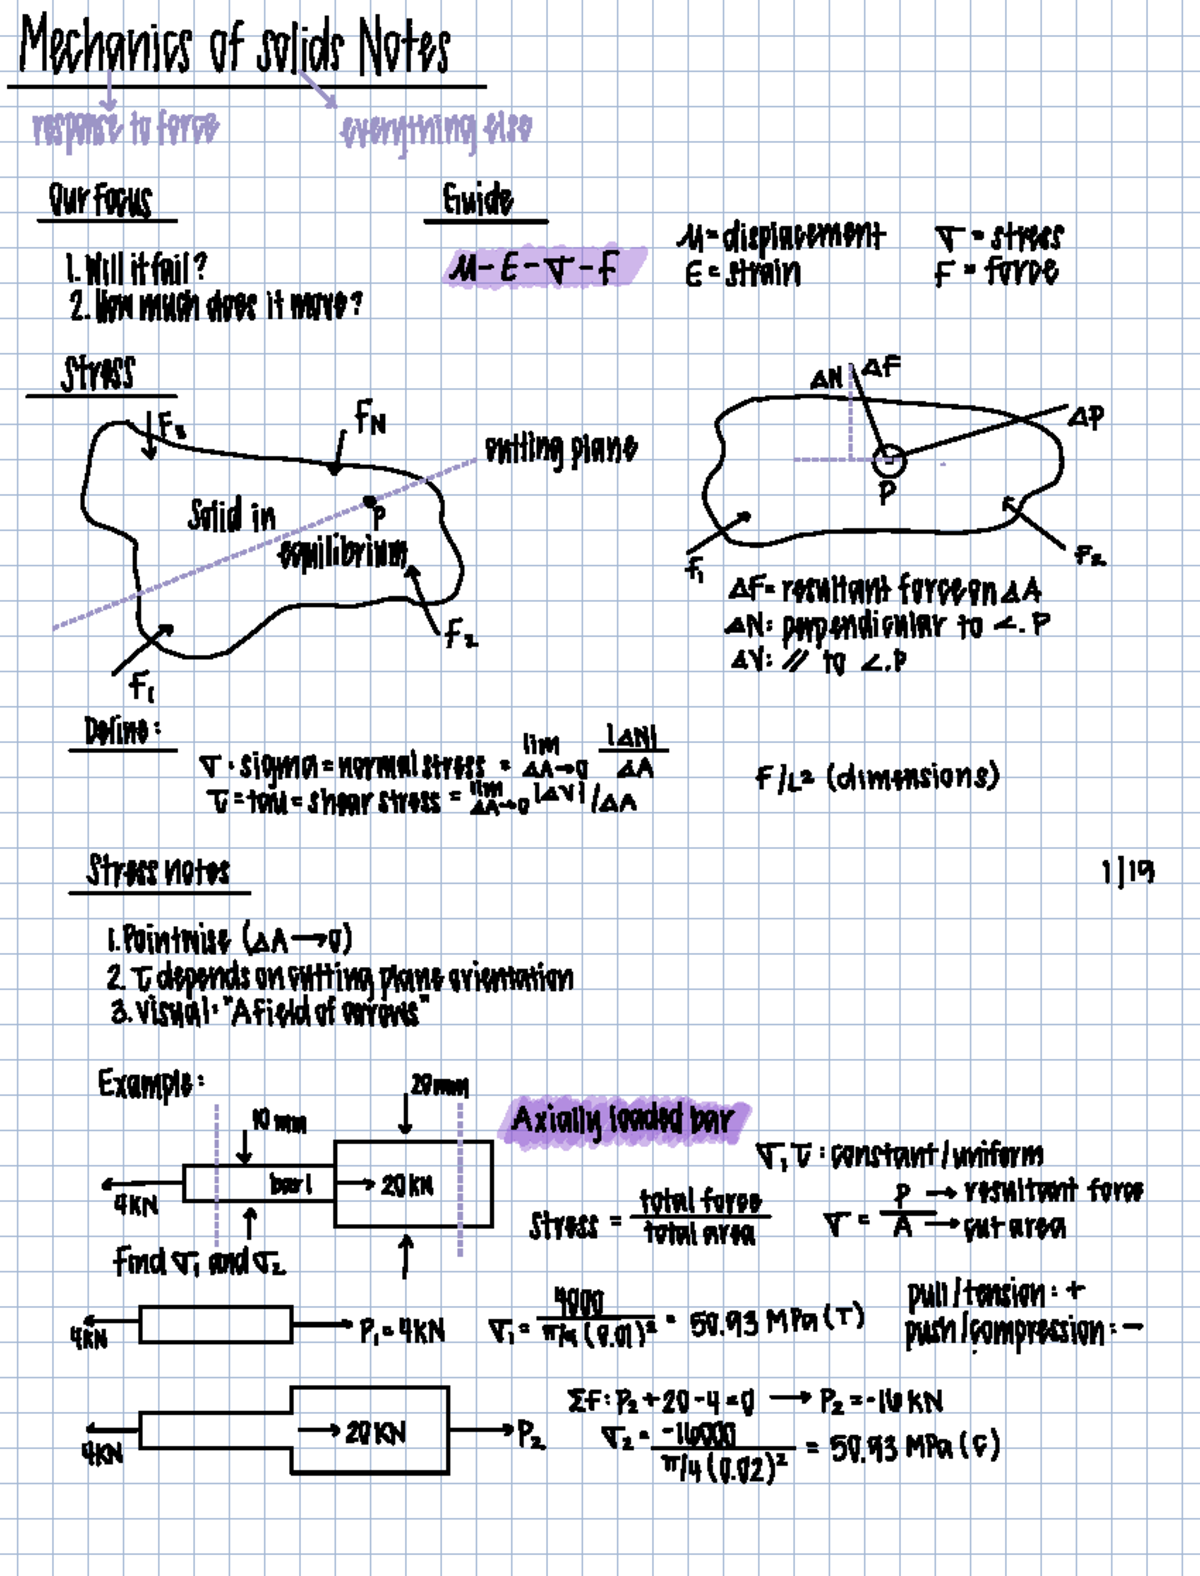 Mechanics of solids Notes
response to force
everything else
Our Focus
1. Will it fail?
2. How much does it move?
Guide
μ - ε - σ - F
μ = displacement
σ = stress
ε = strain
F = force
Stress
F₃
FN
cutting plane
Solid in
equilibrium
P
F₂
F₁
ΔN
ΔF
ΔP
P
F₁
F₂
ΔF = resultant force on ΔA
ΔN: perpendicular to ∠.P
ΔV: // to ∠.P
Define:
σ · sigma = normal stress = lim ΔA→0 |ΔN| / ΔA
τ = tau = shear stress = lim ΔA→0 |ΔV| / ΔA
F/L² (dimensions)
Stress notes
1/19
1. Pointwise (ΔA → 0)
2. τ depends on cutting plane orientation
3. Visual: "A field of arrows"
Example:
20 mm
10 mm
4KN
bar 1
20 KN
Find σ₁ and σ₂
Axially loaded bar
σ, τ : constant/uniform
stress = total force / total area
σ = P / A
→ resultant force
→ cut area
4KN
P₁ = 4KN
σ₁ = 4000 / π/4 (0.01)² = 50.93 MPa (T)
pull/tension: +
push/compression: −
4KN
20 KN
P₂
ΣF: P₂ + 20 - 4 = 0 → P₂ = -16 KN
σ₂ = -16000 / π/4 (0.02)² = 50.93 MPa (C)